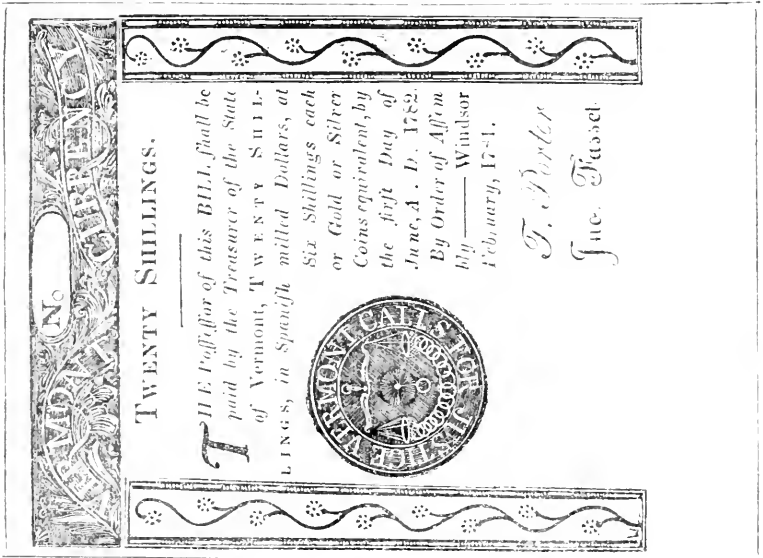 VERMONT CURRENCY
No.
TWENTY SHILLINGS.
THE Poſſeſſor of this BILL ſhall be
paid by the Treaſurer of the State
of Vermont, TWENTY SHIL-
LINGS, in Spaniſh milled Dollars, at
Six Shillings each
or Gold or Silver
Coins equivalent, by
the firſt Day of
June, A. D. 1782.
By Order of Aſſem
bly —— Windsor
February, 1781.
VERMONT CALLS FOR JUSTICE
T. Porter
Jno. Fasset